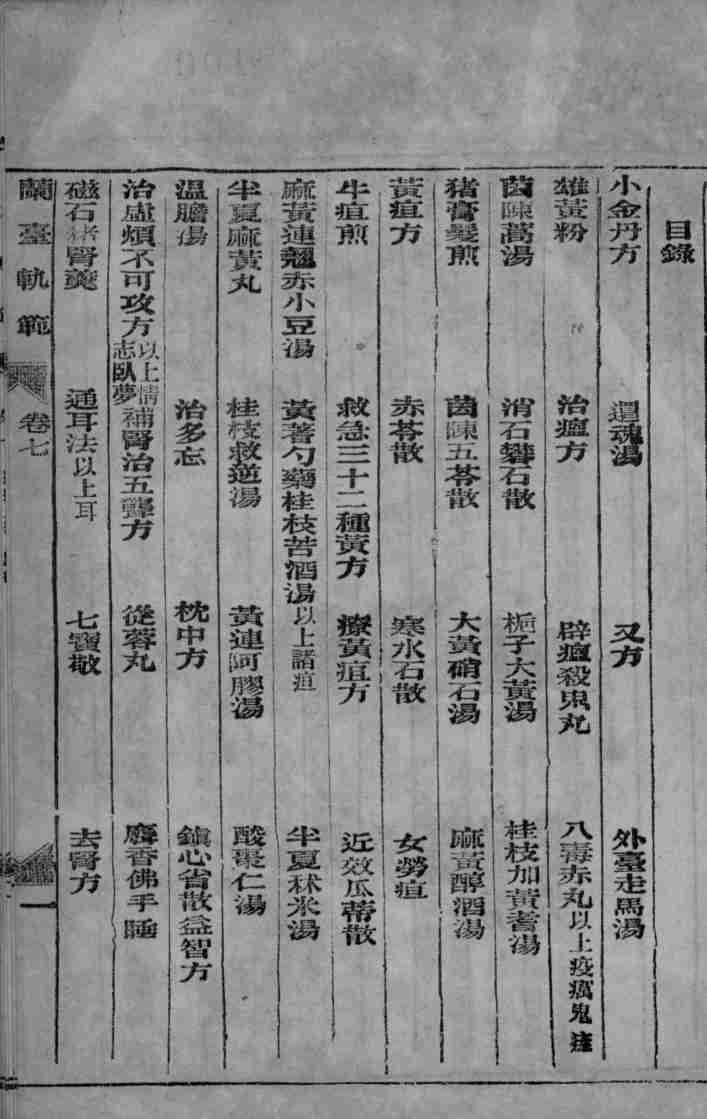 目錄
小金丹方 還魂湯 又方 外臺走馬湯
雄黃粉 治瘟方 辟瘟殺鬼丸 八毒赤丸以上疫癘鬼疰
茵陳蒿湯 消石礬石散 梔子大黃湯 桂枝加黃耆湯
猪膏髮煎 茵陳五苓散 大黃硝石湯 麻黃醇酒湯
黃疸方 赤苓散 寒水石散 女勞疸
牛疸煎 救急三十二種黃方 療黃疸方 近效瓜蒂散
麻黃連翹赤小豆湯 黃蓍勺藥桂枝苦酒湯以上諸疸 半夏秫米湯
半夏麻黃丸 桂枝救逆湯 黃連阿膠湯 酸棗仁湯
温膽湯 治多忘 枕中方 鎮心省散益智方
治虛煩不可攻方以上情志臥夢 補腎治五聾方 從蓉丸 麝香佛手
磁石猪腎羹 通耳法以上耳 七寶散 去腎方
蘭臺軌範 卷七 一